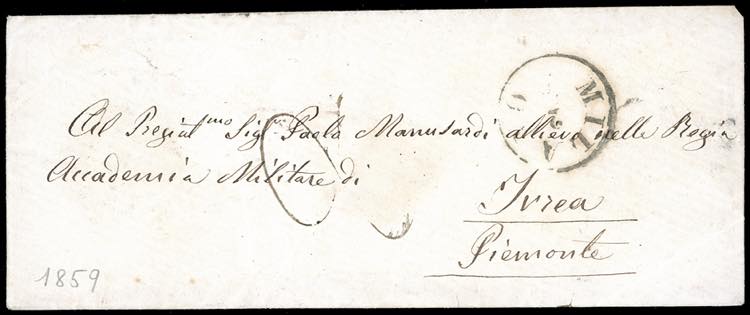 MILANO
Al Pregiat.mo Sig.r Paolo Manusardi allievo nella Regia
Accademia Militare di
Ivrea
Piemonte
1859